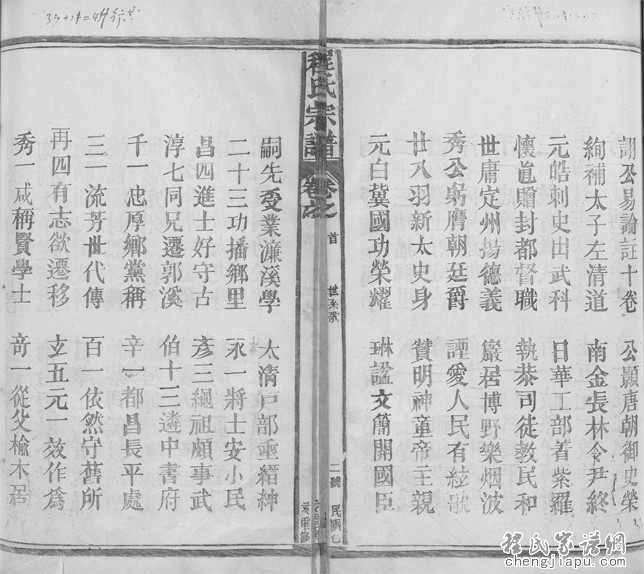 33+14=47行共
訓公易論註十卷 公顥唐朝御史榮
絢補太子左清道 南金長林令尹終
元皓刺史出武科 日華工部着紫羅
懷𥄎贈封都督職 執恭司徒教民和
世庸定州揚德義 巖居博野樂烟波
秀公躬膺朝廷爵 諲愛人民有絃歌
廿八羽新太史身 贊明神童帝王親
元白冀國功榮耀 琳諡文簡開國臣
程氏宗譜 卷之首 世系歌 二號
嗣先受業濂溪學 太清戶部垂紳紳
二十三功播鄉里 永一將士安小民
昌四進士好守古 彥三繩祖頗事武
淳七同兄遷郭溪 伯十三遴中書府
千一忠厚鄉黨稱 辛一都昌長平處
三一流芳世代傳 百一依然守舊所
再四有志欲遷移 玄五元一效作為
秀一咸稱賢學士 奇一從父榆木居
程氏家譜網
chengjiapu.com